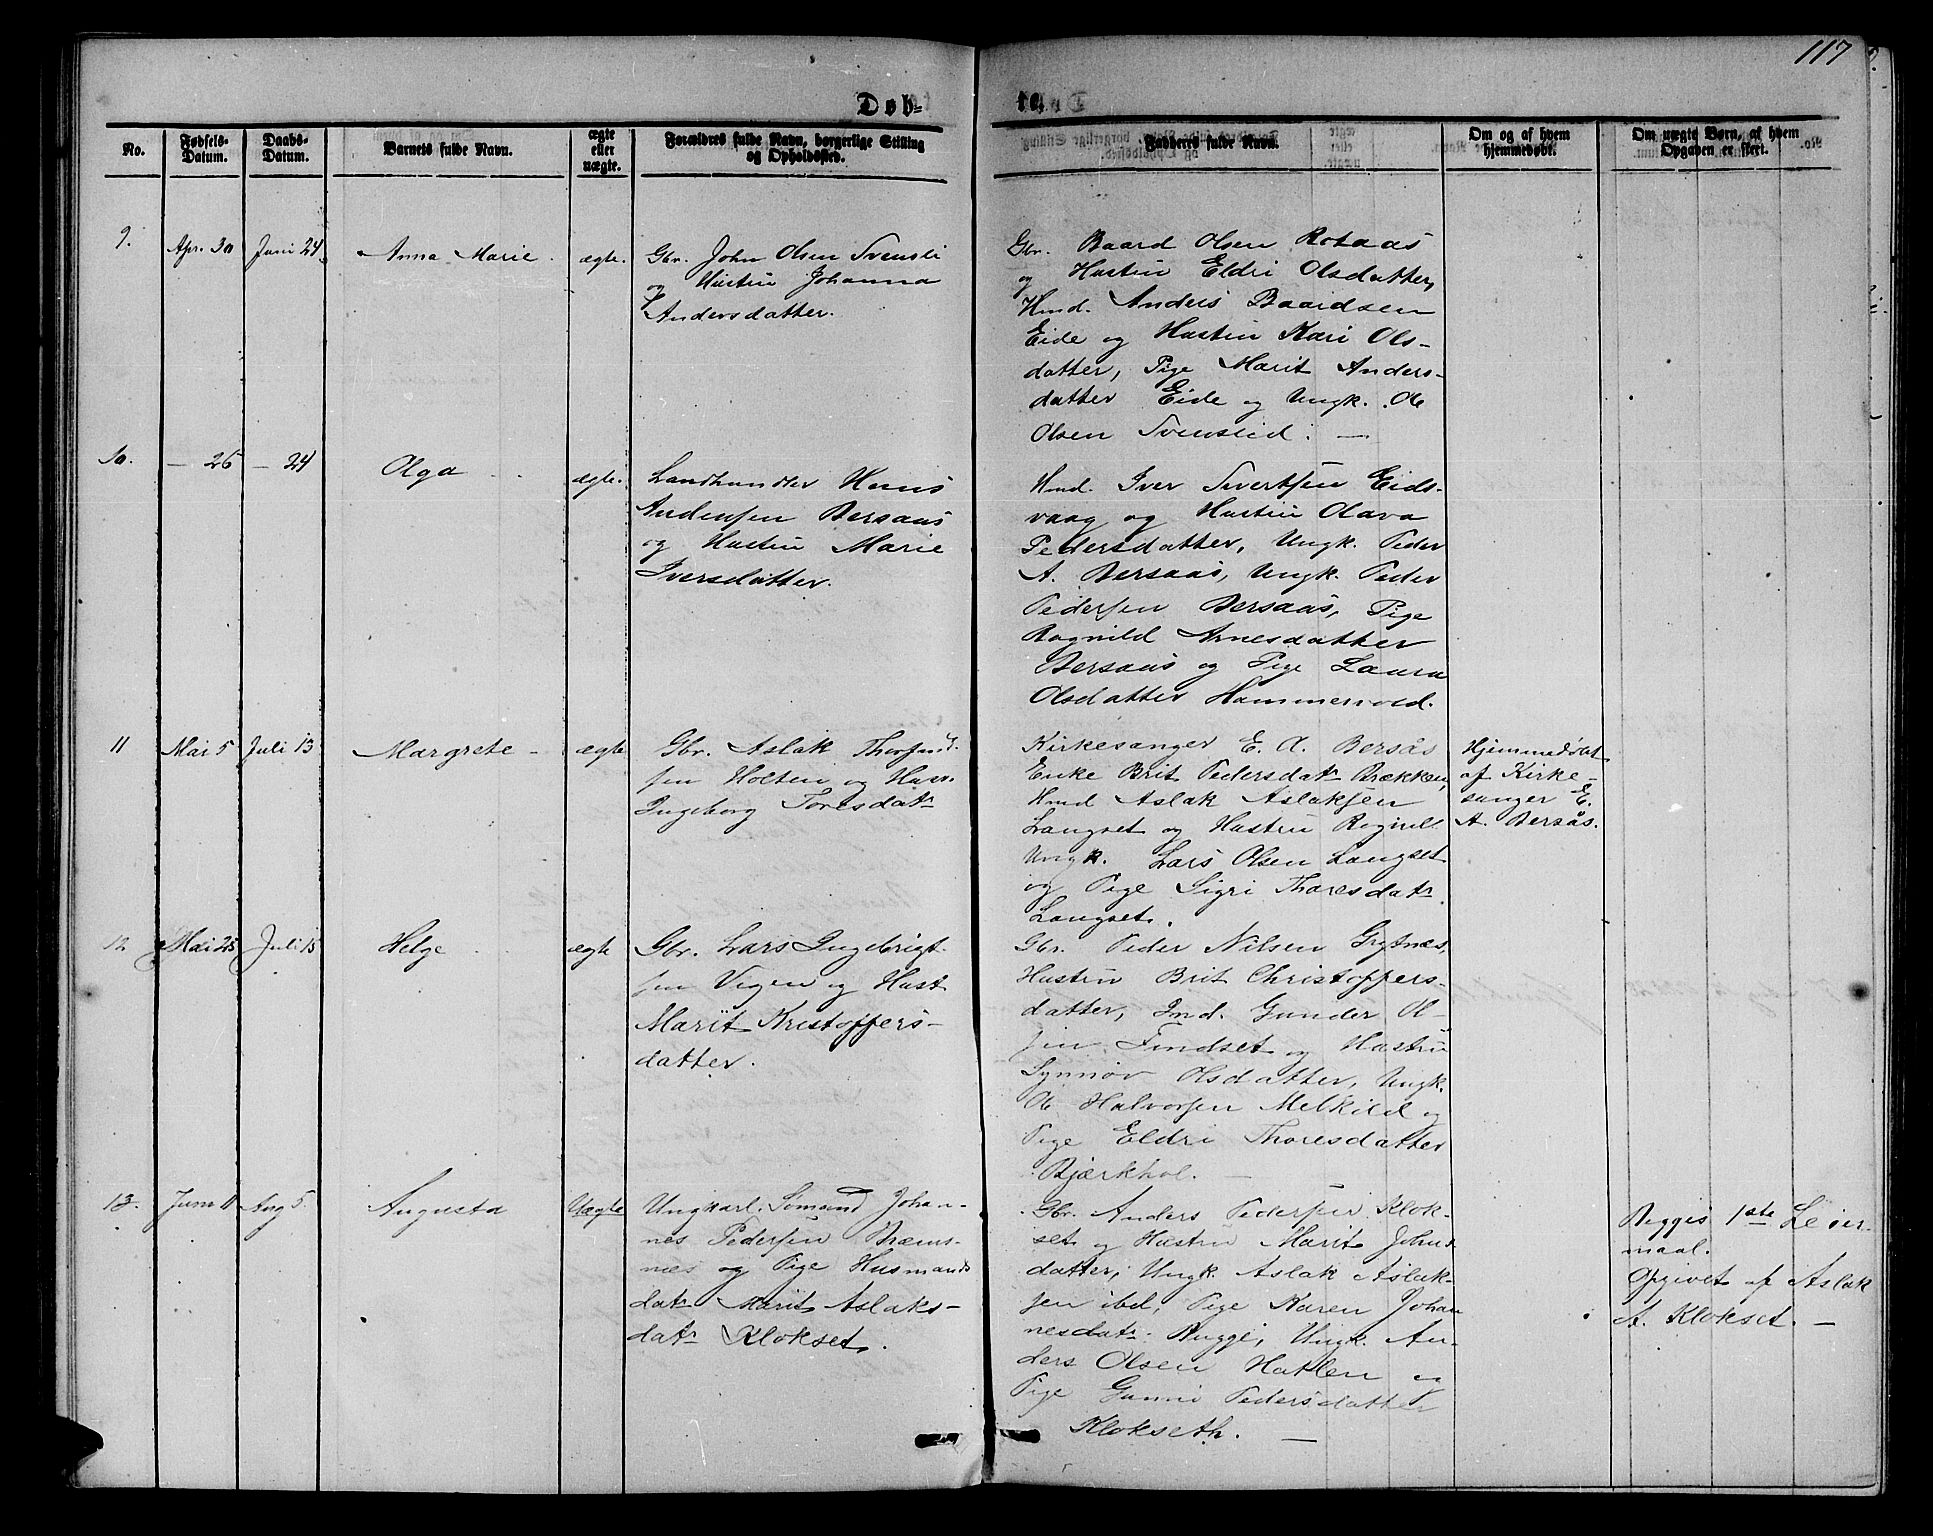 117
Døb-
te.
No.
Fødsels-
Datum.
Daabs-
Datum.
Barnets fulde Navn.
ægte
eller
uægte.
Forældres fulde Navn, borgerlige Stilling
og Opholdssted.
Faddernes fulde Navn.
Om og af hvem
hjemmedøbt.
Om uægte Børn, af hvem
Opgaven er skeet.
9.
Apr. 30
Juni 24
Anna Marie.
ægte.
Gbr. John Olsen Svensli
og Hustru Johanna
Andersdatter.
Gbr. Baard Olsen Rotaas
og Hustru Eldri Olsdatter,
Hmd. Anders Baardsen
Eide og Hustru Kari Ols-
datter, Pige Marit Anders-
datter Eide og Ungk. Ole
Olsen Svenslid. —
10.
— 26
— 24
Olga
ægte.
Landhandler Hans
Andersen Bersaas
og Hustru Marie
Iversdatter.
Hmd. Iver Sivertsen Eids-
vaag og Hustru Olava
Pedersdatter, Ungk. Peder
A. Bersaas, Ungk. Peder
Pedersen Bersaas, Pige
Ragnild Arnesdatter
Bersaas og Pige Laura
Olsdatter Hammervold.
11
Mai 5
Juli 13
Margrete —
ægte
Gbr. Aslak Thorfind-
sen Holten og Hust.
Ingeborg Toresdatr
Kirkesanger E. A. Bersås
Enke Brit Pedersdatr Brækken,
Hmd Aslak Aslaksen
Langset og Hustru Ragnild
Ungk. Lars Olsen Langset
og Pige Sigri Thoresdatr
Langset.
Hjemmedøbt
af Kirke-
sanger E.
A. Bersås.
12
Mai 25
Juli 15
Helge
ægte
Gbr. Lars Ingebrigt-
sen Vigen og Hust
Marit Kristoffers-
datter.
Gbr. Peder Nilsen Grytnæs,
Hustru Brit Christoffers-
datter, Ind. Gunder Ol-
sen Findset og Hustru
Synnøv Olsdatter, Ungk.
Ole Halvorsen Melkild og
Pige Eldri Thoresdatter
Bjærkhol. —
13.
Juni 11
Aug 5.
Augusta
Uægte
Ungkarl. Sømand Johan-
nes Pedersen Bræms-
næs og Pige Husmands
datr Marit Aslaks-
datr Klokset.
Gbr. Anders Pedersen Klok-
set og Hustru Marit Johns-
datter, Ungk. Aslak Aslak-
sen ibd, Pige Karen Johan
nesdatr. Bugge, Ungk. An-
ders Olsen Hatlen og
Pige Gunni Pedersdatter
Klokseth. —
Begges 1ste Leier-
maal.
Opgivet af Aslak
A. Klokset. —